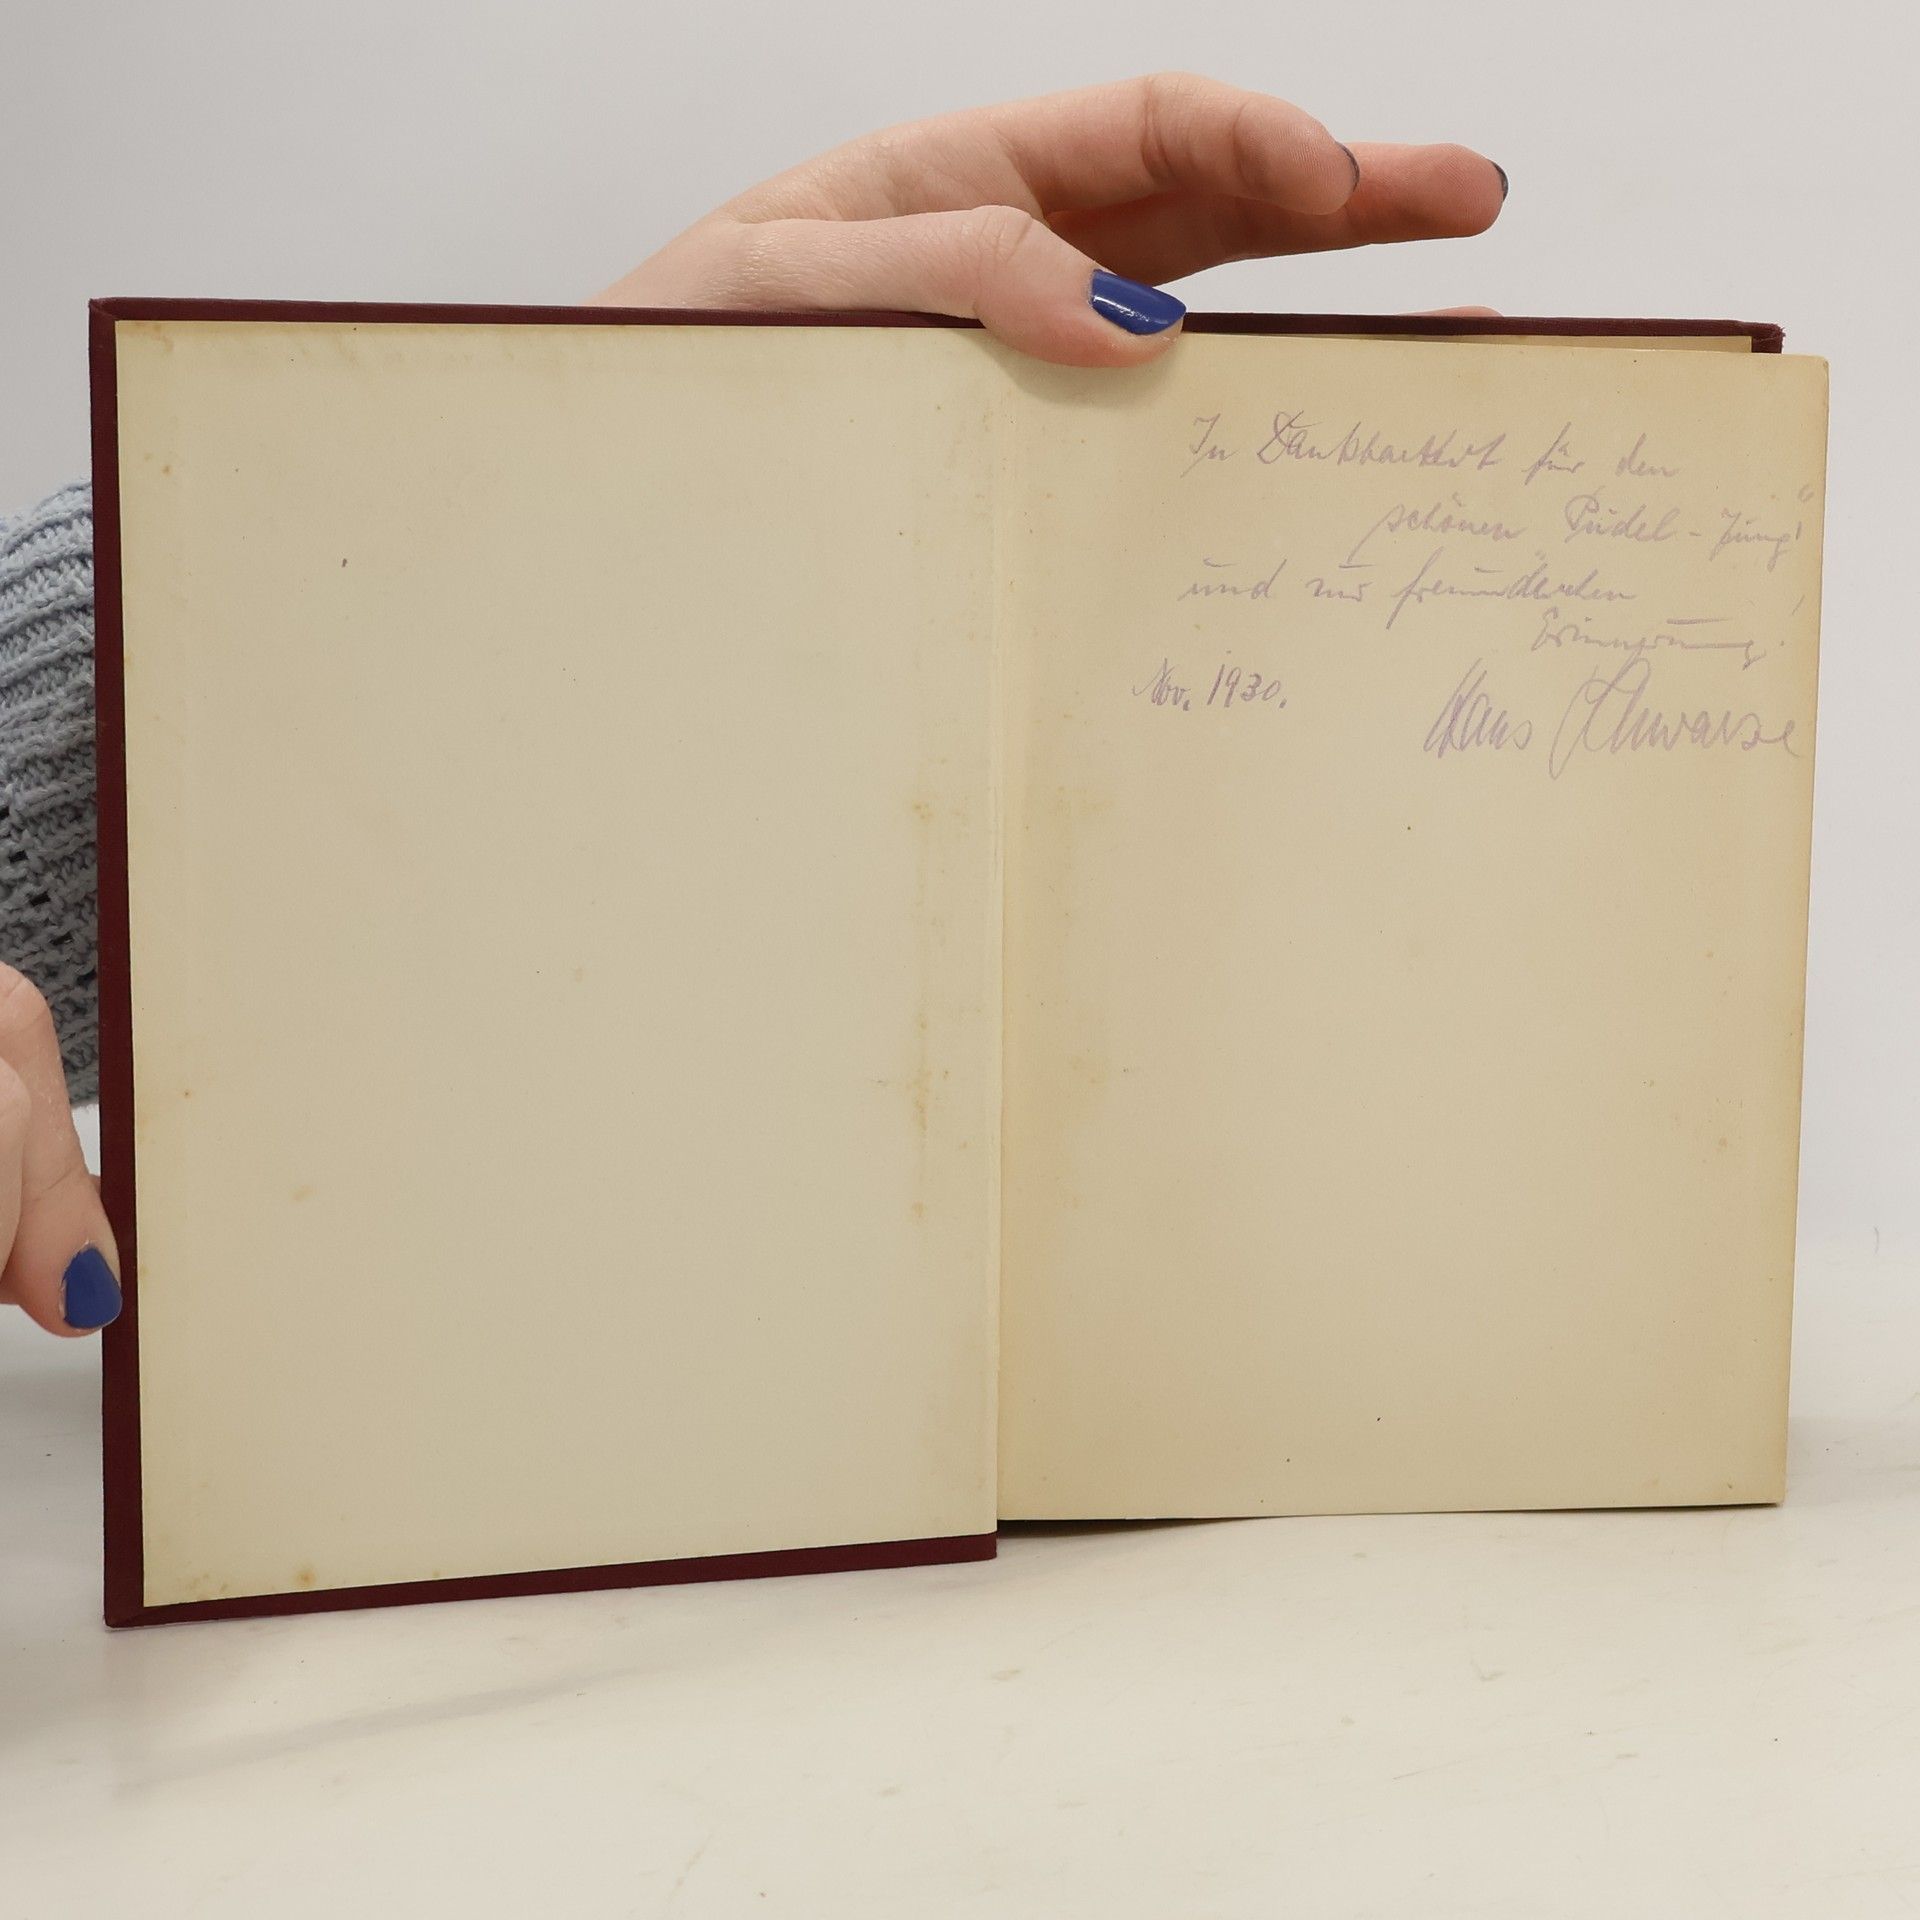 In Dankbarkeit für den
schönen Pudel-Jung!"
und zur freundlichen
Erinnerung!
Nov. 1930.
Hans Schwarze